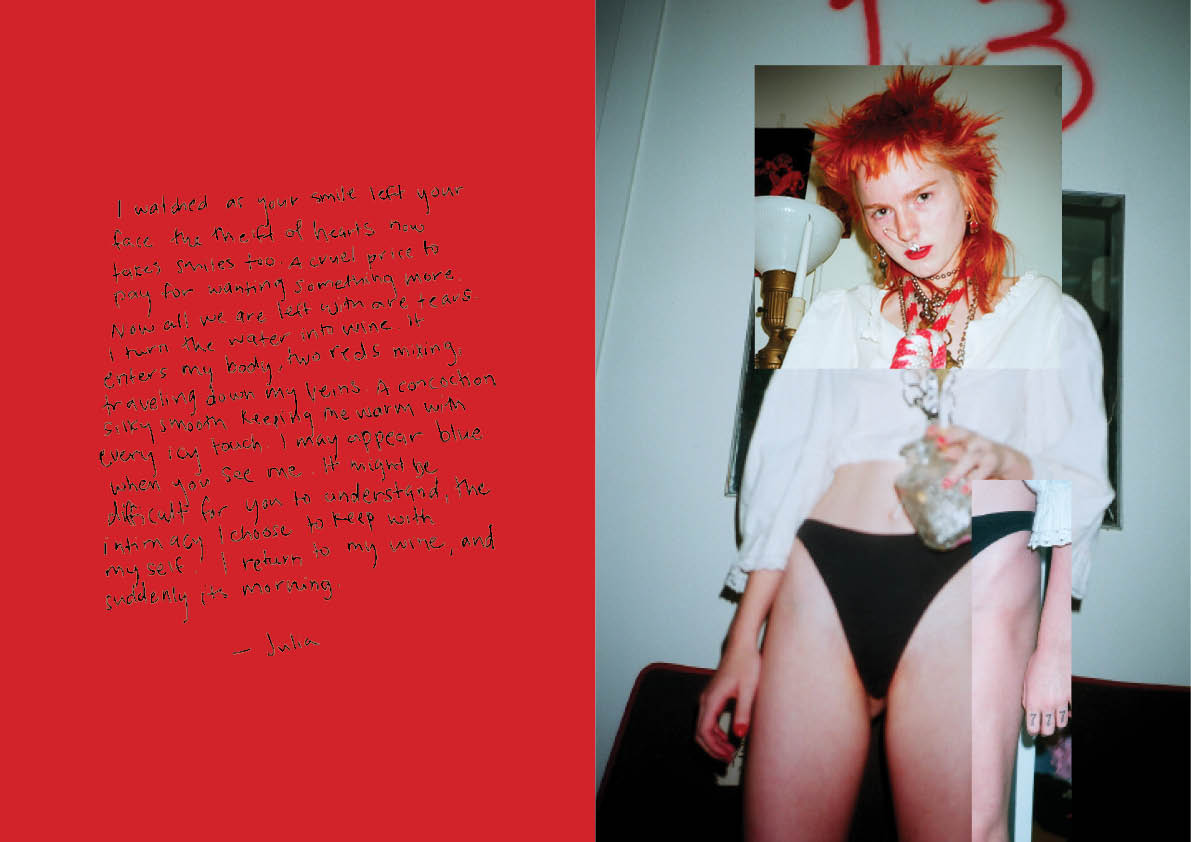 I watched as your smile left your
face the theift of hearts now
takes smiles too. A cruel price to
pay for wanting something more.
Now all we are left with are tears.
I turn the water into wine. It
enters my body, two reds mixing,
traveling down my veins. A concoction
silky smooth keeping me warm with
every icy touch. I may appear blue
when you see me. It might be
difficult for you to understand, the
intimacy I choose to keep with
myself. I return to my wine, and
suddenly its morning.
— Julia
13
777